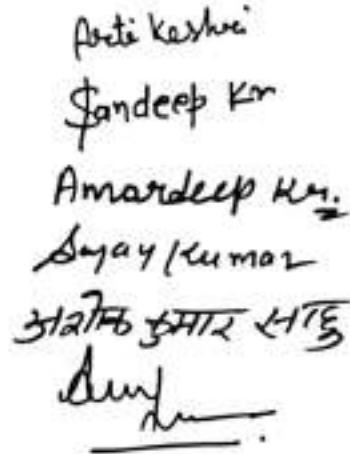 Arti Keshri
Sandeep Kr
Amardeep Kr.
Sujay Kumar
अशोक कुमार साहु